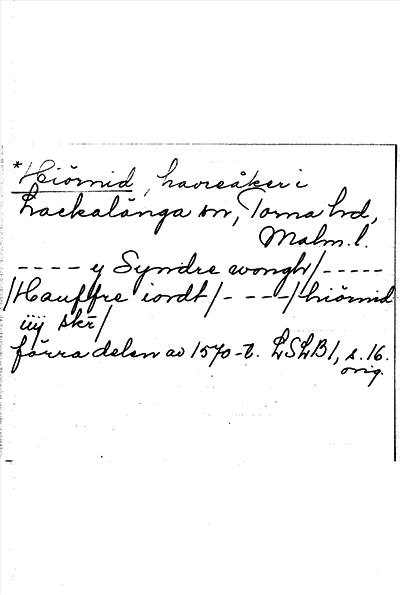 *Hiörnid, havreåker i
Lackalänga sn, Torna hd,
Malm. l.
- - - - y Syndre wongh/ - - - - -
/Hauffre iordt/ - - - -/ hiörnid
iiij skr/
förra delen av 1570-t. LSLB1, s. 16.
orig.